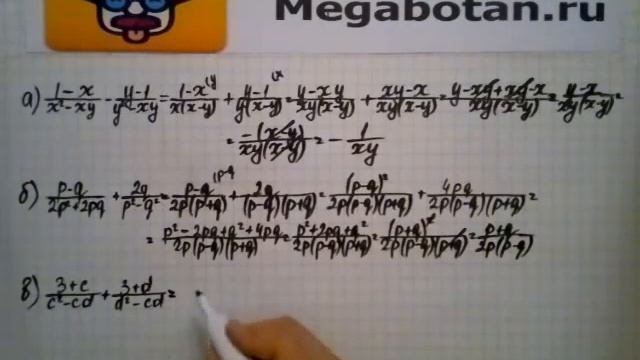 Megabotan.ru
а) (1-x)/(x²-xy) - (y-1)/(y²-xy) = (1-x)/(x(x-y)) + (y-1)/(y(x-y)) = (y-xy)/(xy(x-y)) + (xy-x)/(xy(x-y)) = (y-xy+xy-x)/(xy(x-y)) = (y-x)/(xy(x-y)) =
= (-1(x-y))/(xy(x-y)) = - 1/(xy)
б) (p-q)/(2p²+2pq) + 2q/(p²-q²) = (p-q)/(2p(p+q)) + 2q/((p-q)(p+q)) = (p-q)²/(2p(p-q)(p+q)) + 4pq/(2p(p-q)(p+q)) =
= (p²-2pq+q²+4pq)/(2p(p-q)(p+q)) = (p²+2pq+q²)/(2p(p-q)(p+q)) = (p+q)²/(2p(p-q)(p+q)) = (p+q)/(2p(p-q))
в) (3+c)/(c²-cd) + (3+d)/(d²-cd) =